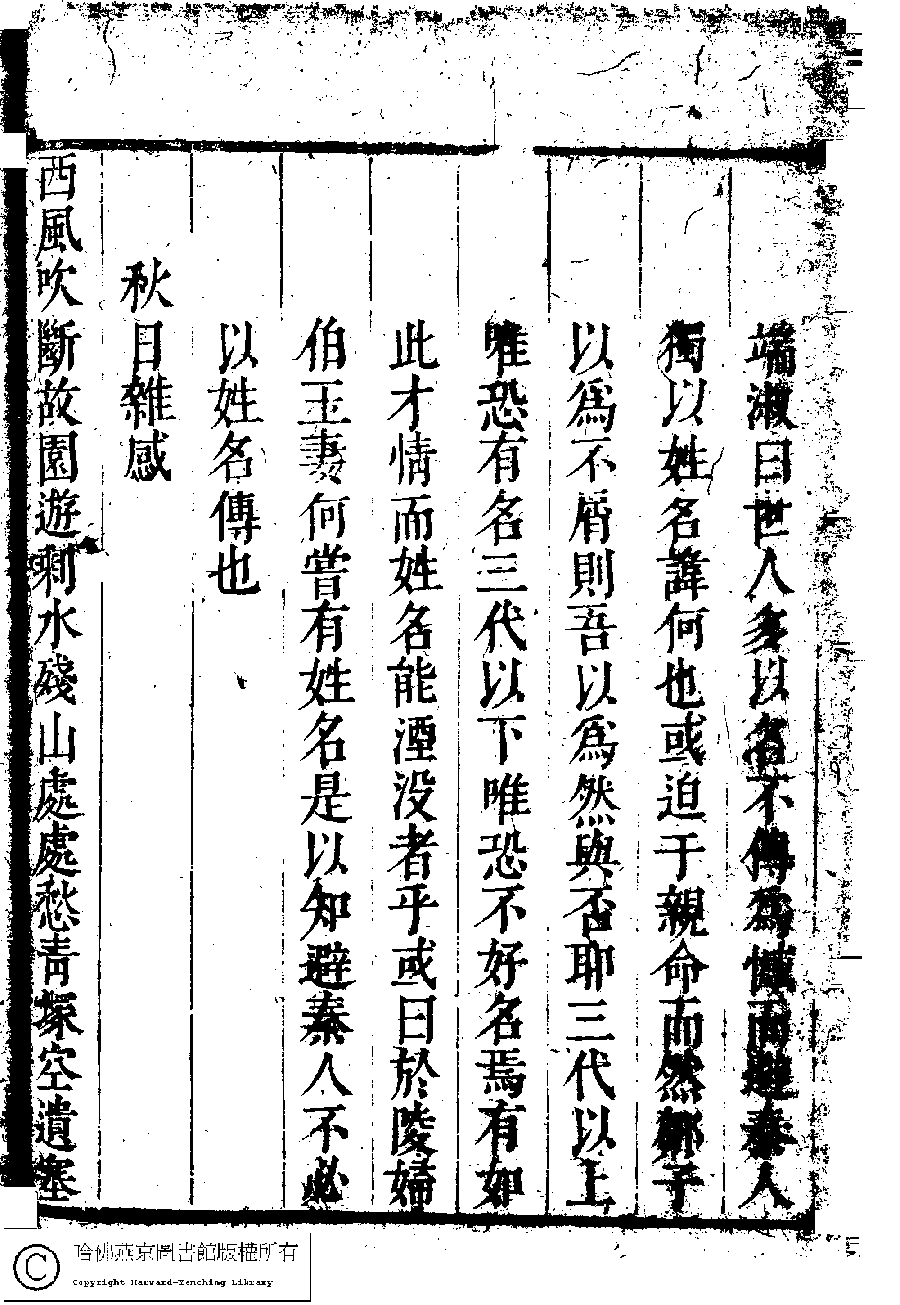 端淑曰世人多以名不傳爲憾而避秦人
獨以姓名諱何也或迫于親命而然鄉子
以爲不屑則吾以爲然與否耶三代以上
唯恐有名三代以下唯恐不好名焉有如
此才情而姓名能湮没者乎或曰於陵婦
伯玉妻何嘗有姓名是以知避秦人不必
以姓名傳也
秋日雜感
西風吹斷故園遊剩水殘山處處愁青塚空遺塞
哈佛燕京圖書館版權所有
Copyright Harvard-Yenching Library